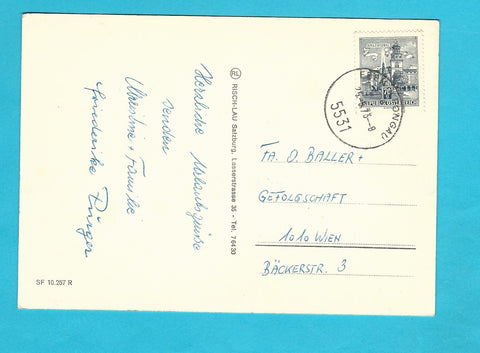 Herzliche Urlaubsgrüße
senden
Christine + Familie
Friederike
RL RISCH-LAU Salzburg, Lasserstrasse 35 - Tel. 76430
SF 10.257 R
REPUBLIK ÖSTERREICH
5531
FA. O. BALLER +
GEFOLGSCHAFT
1010 WIEN
BÄCKERSTR. 3